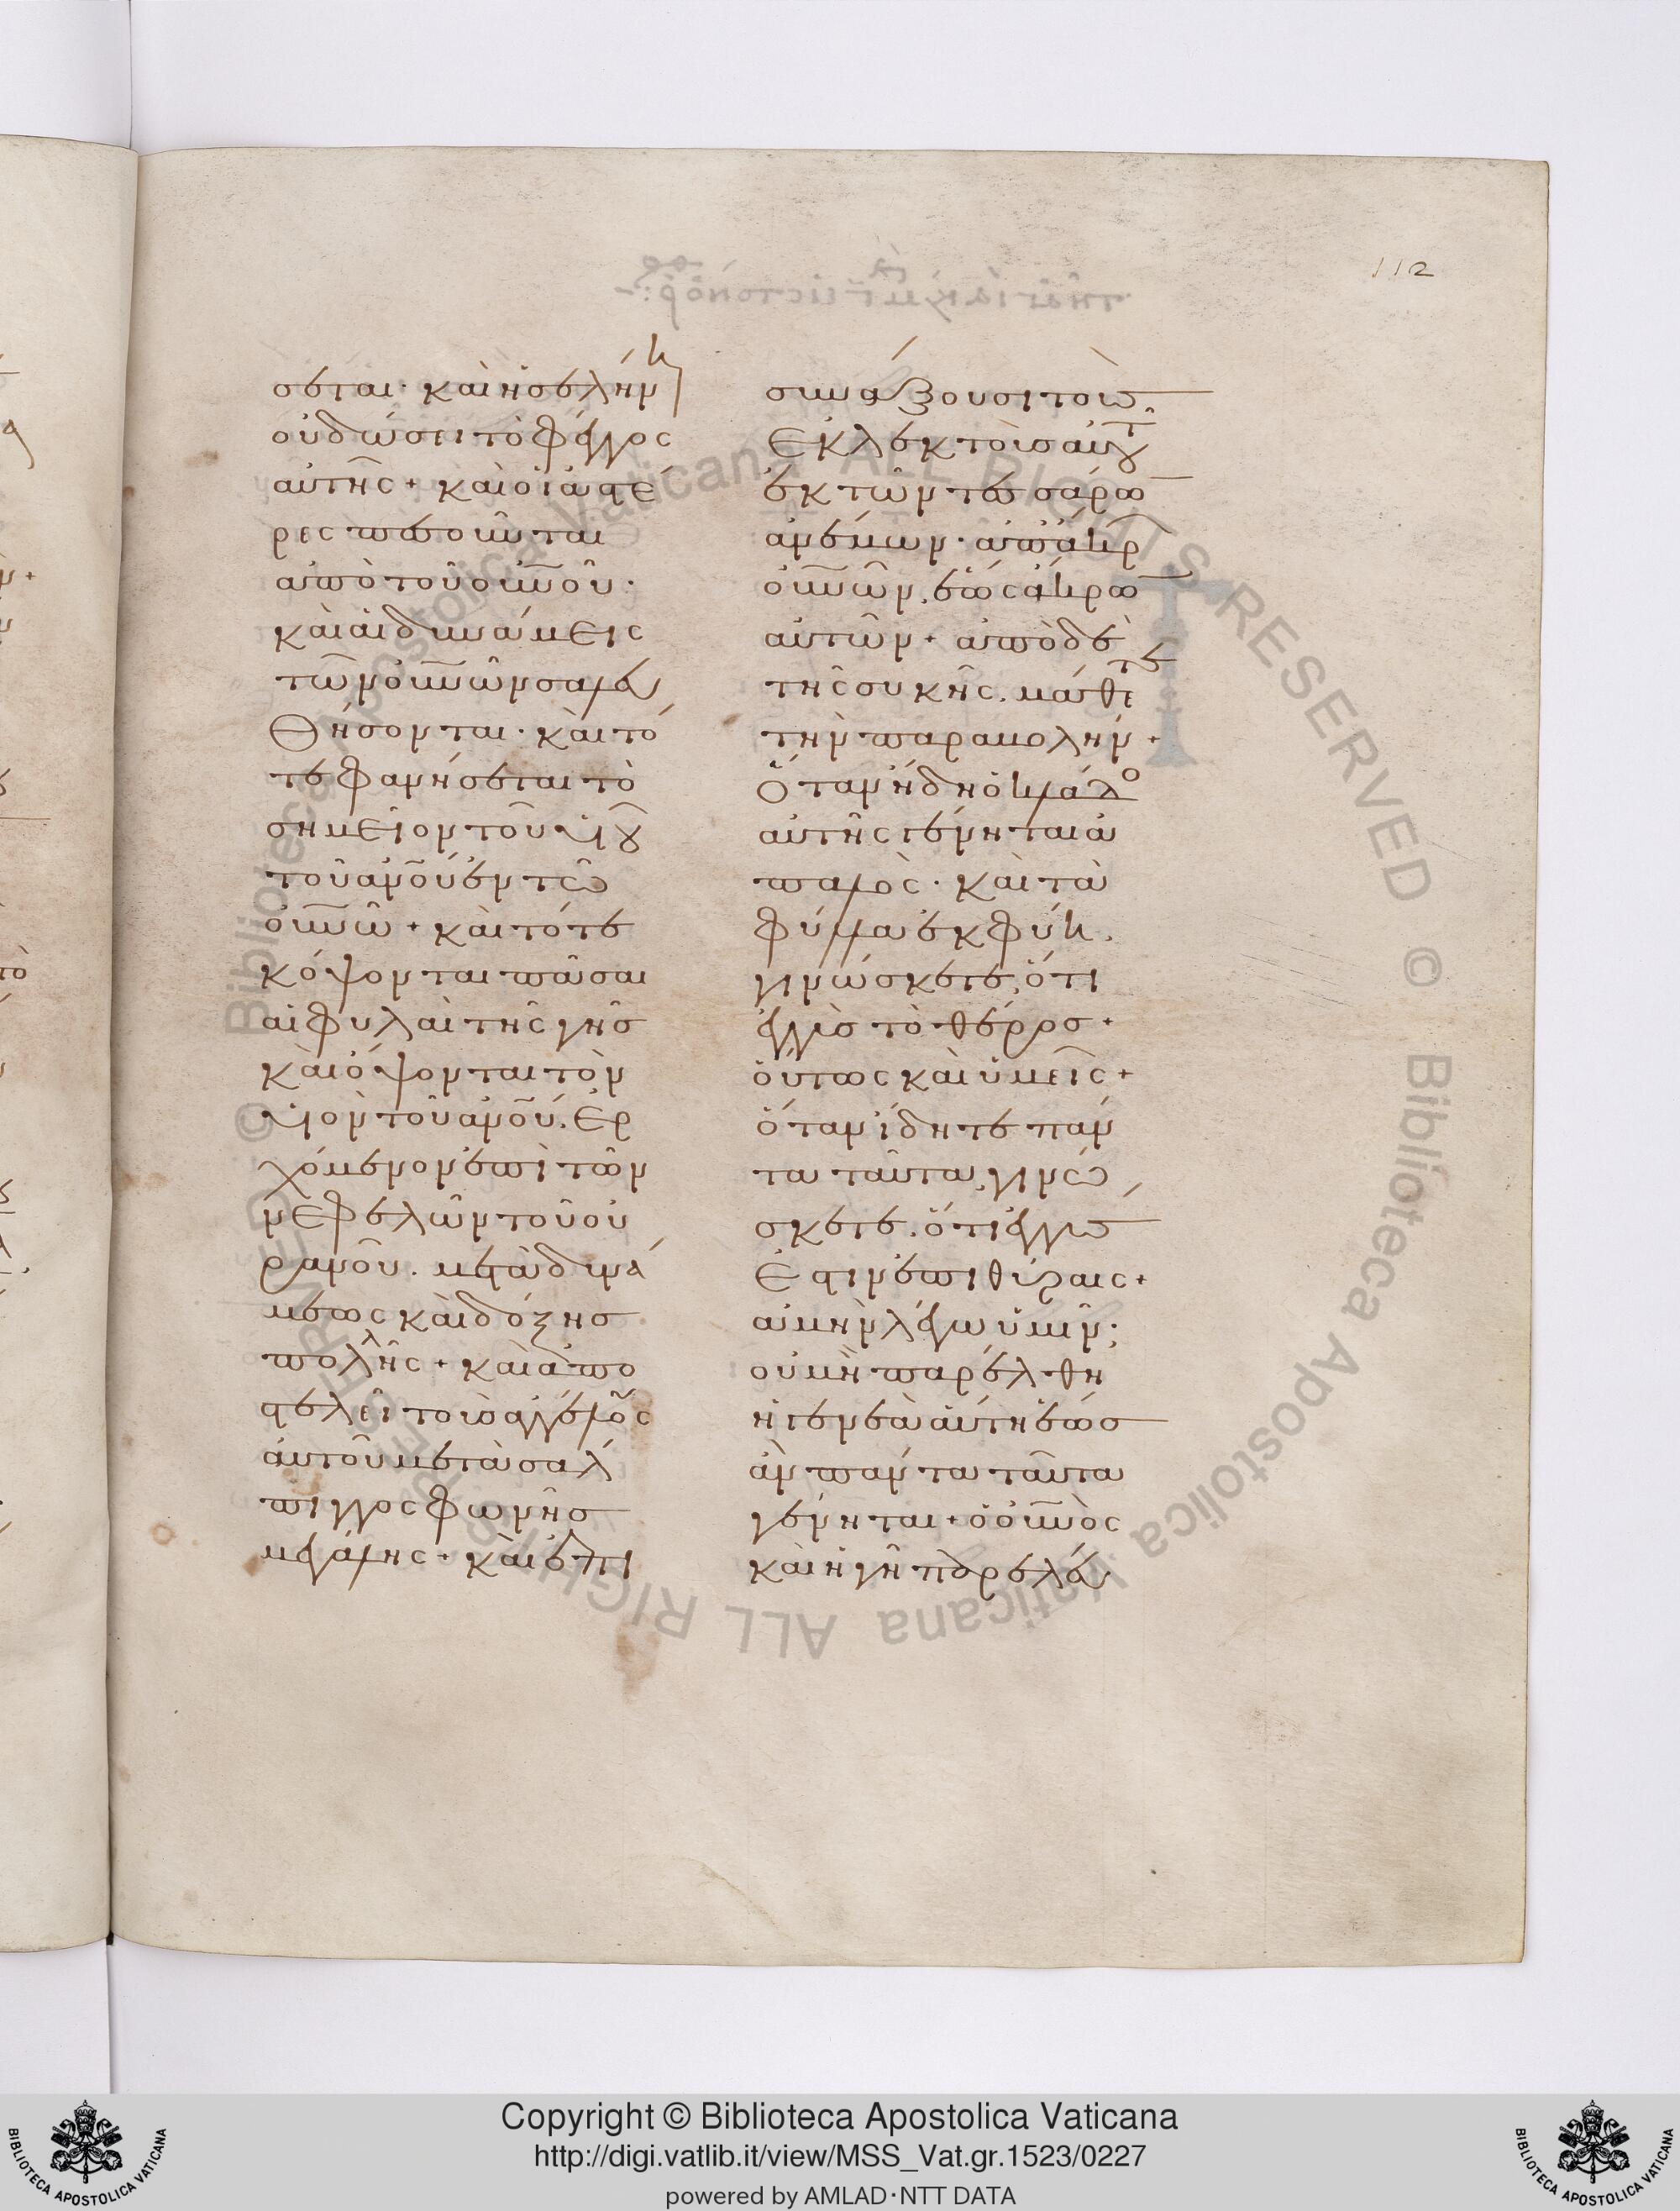 112
σεται· καὶ ἡ σελήνη
οὐ δώσει τὸ φέγγος
αὐτῆς + καὶ οἱ ἀστέ
ρες πεσοῦνται
ἀπὸ τοῦ οὐνοῦ·
καὶ αἱ δυνάμεις
τῶν οὐνῶν σαλευ
θήσονται· καὶ τό
τε φανήσεται τὸ
σημεῖον τοῦ υἱοῦ
τοῦ ἀνοῦ ἐν τῶ
οὐνῶ + καὶ τότε
κόψονται πᾶσαι
αἱ φυλαὶ τῆς γῆς
καὶ ὄψονται τὸν
υἱὸν τοῦ ἀνοῦ. ἐρ
χόμενον ἐπὶ τῶν
νεφελῶν τοῦ οὐ
ρανοῦ. μετὰ δυνά
μεως καὶ δόξης
πολλῆς + καὶ ἀπο
στελεῖ τοὺς ἀγγέλους
αὐτοῦ μετὰ σάλ
πιγγος φωνῆς
μεγάλης + καὶ ἐπι
συνάξουσι τοὺς
ἐκλεκτοὺς αὐτοῦ
ἐκ τῶν τεσσάρων
ἀνέμων· ἀπ' ἄκρων
οὐνῶν, ἕως ἄκρων
αὐτῶν + ἀπὸ δὲ
τῆς συκῆς. μάθετε
τὴν παραβολήν +
Ὅταν ἤδη ὁ κλάδος
αὐτῆς γένηται ἁ
παλὸς· καὶ τὰ
φύλλα ἐκφύη.
γινώσκετε, ὅτι
ἐγγὺς τὸ θέρος +
οὕτως καὶ ὑμεῖς +
ὅταν ἴδητε πάν
τα ταῦτα, γινώ
σκετε. ὅτι ἐγγύς
ἐστιν ἐπὶ θύραις +
ἀμὴν λέγω ὑμῖν·
οὐ μὴ παρέλθη
ἡ γενεὰ αὕτη ἕως
ἂν πάντα ταῦτα
γένηται + ὁ οὐνὸς
καὶ ἡ γῆ παρελεύ
Copyright © Biblioteca Apostolica Vaticana
http://digi.vatlib.it/view/MSS_Vat.gr.1523/0227
powered by AMLAD·NTT DATA
BIBLIOTECA APOSTOLICA VATICANA
BIBLIOTECA APOSTOLICA VATICANA
© Biblioteca Apostolica Vaticana ALL RIGHTS RESERVED
© Biblioteca Apostolica Vaticana ALL RIGHTS RESERVED